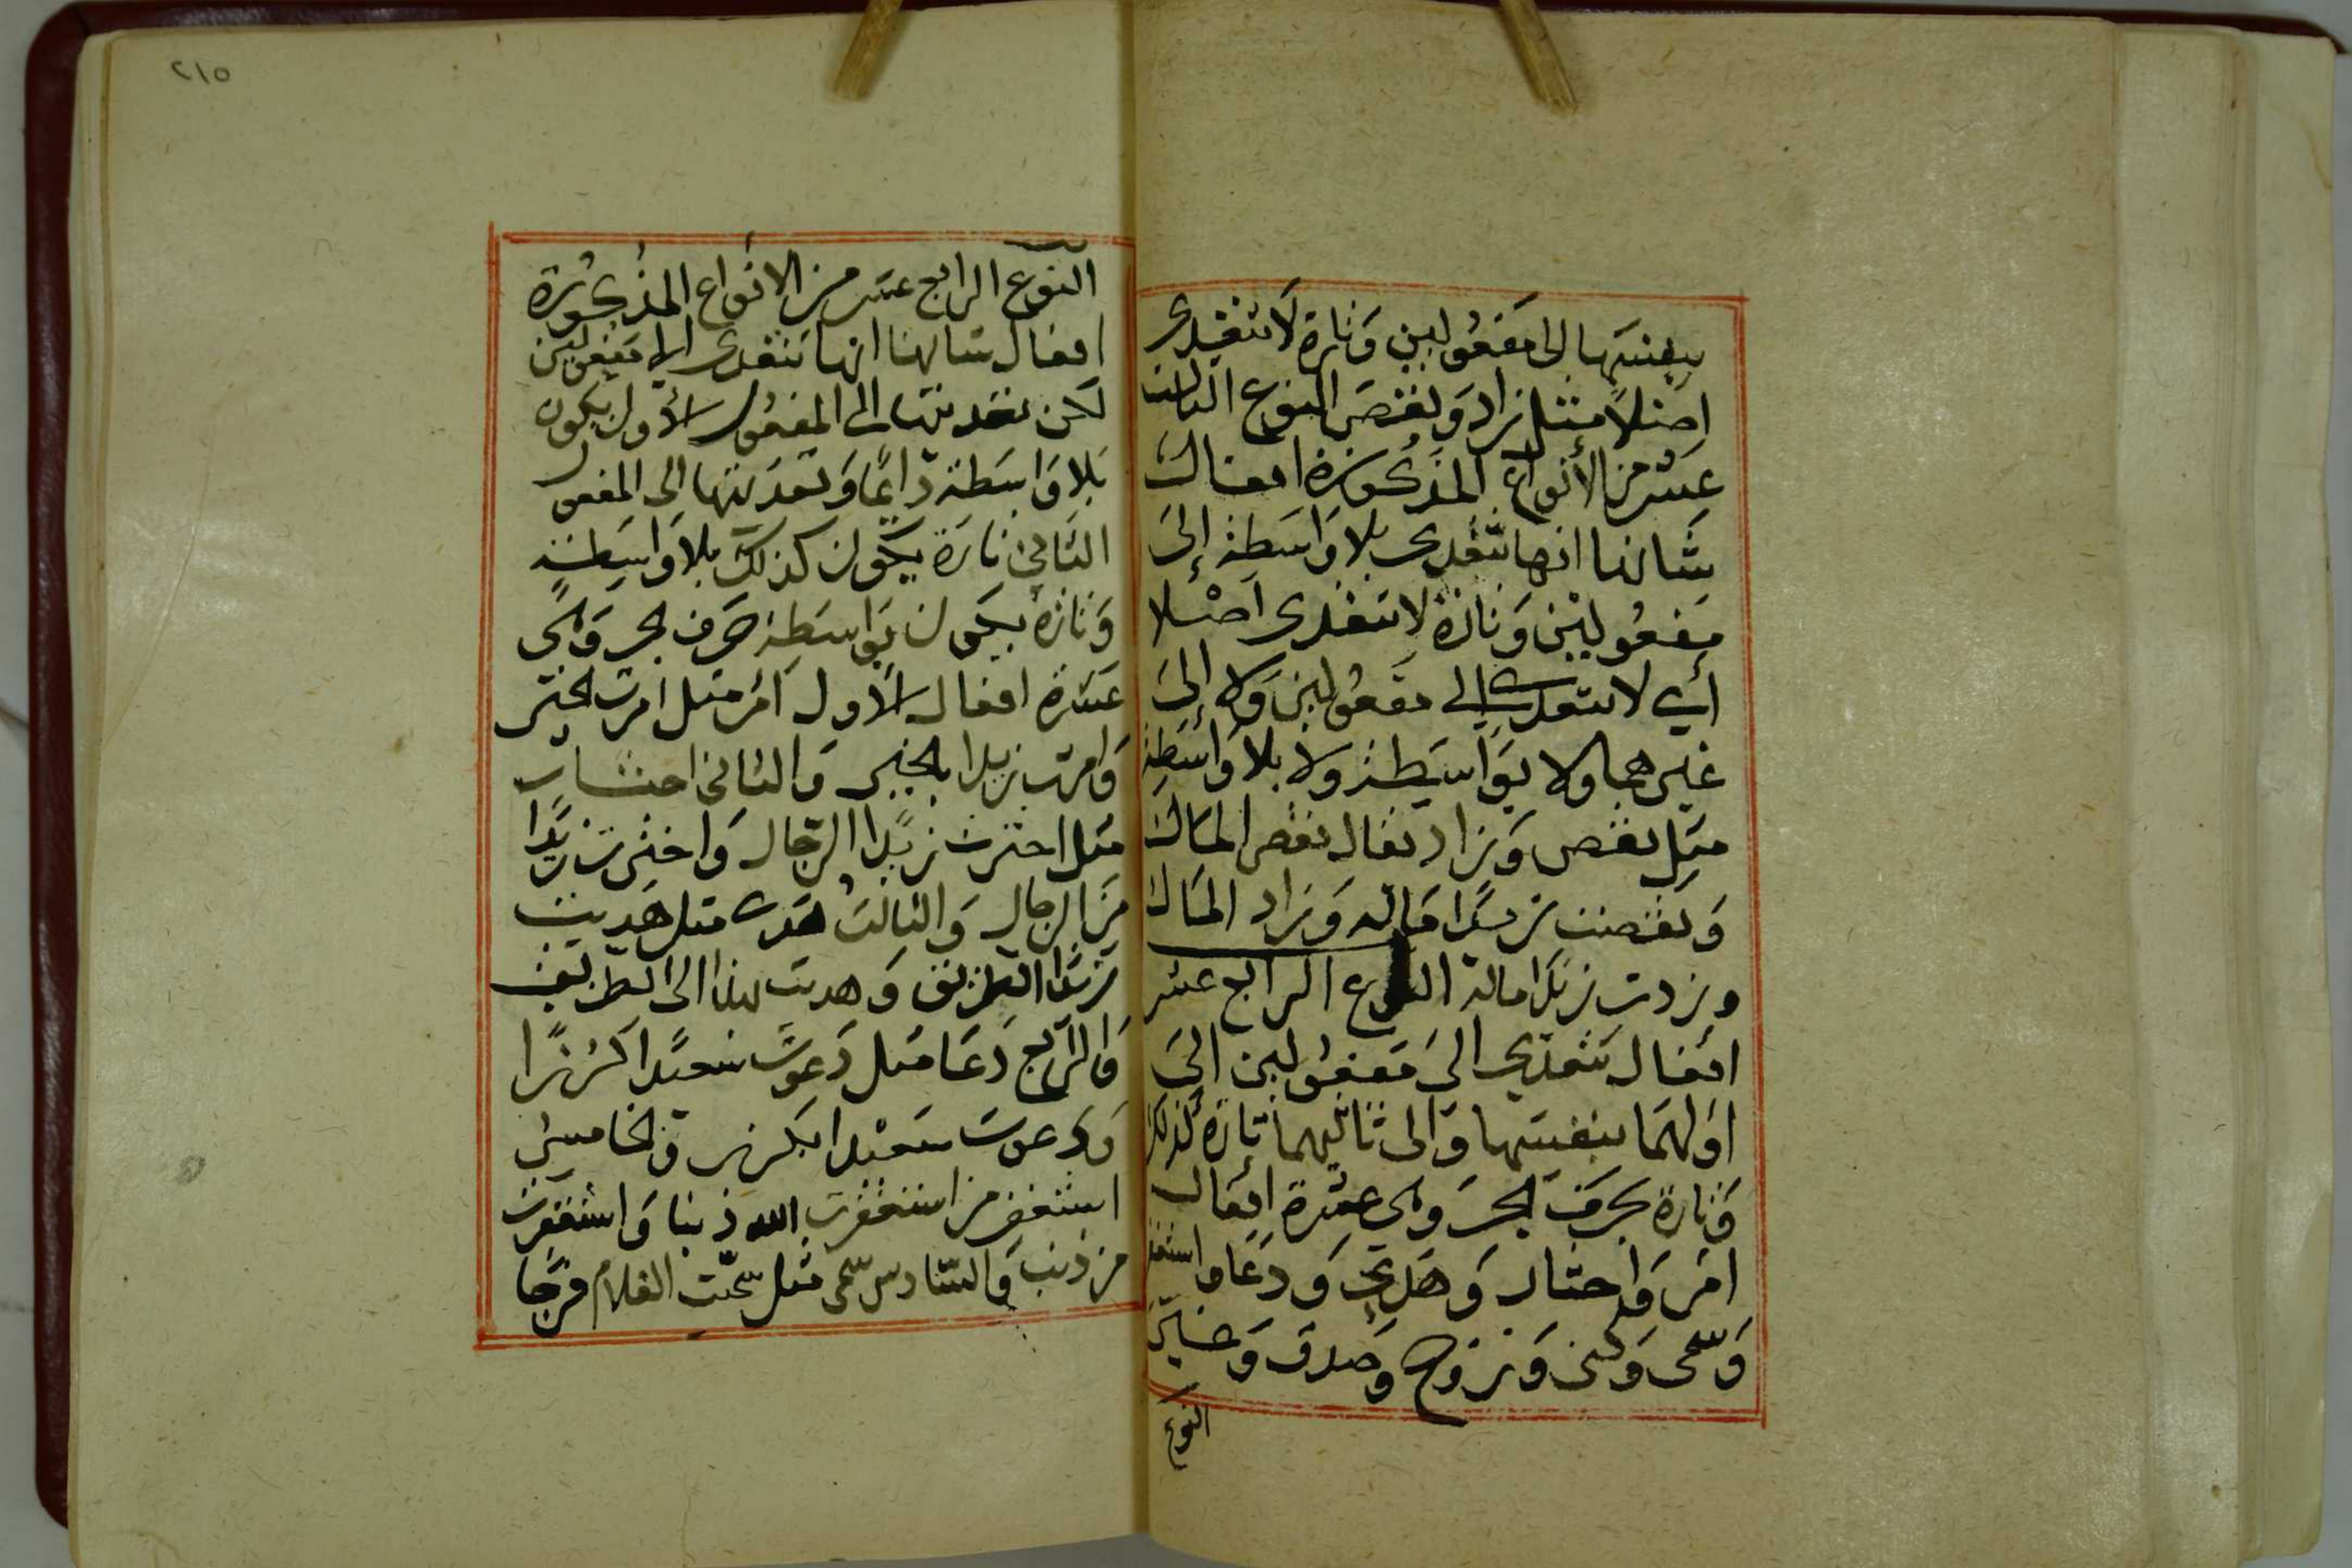 بنفسها الى مفعولين وتارة لا تتعدى
اصلا مثل زاد ونقص النوع الثالث
عشر من الأنواع المذكورة افعال
شانها انها تتعدى بلا واسطة إلى
مفعولين وتارة لا تتعدى اصلا
أي لا تتعدى إلى مفعولين ولا إلى
غيرهما ولا بواسطة ولا بلا واسطة
مثل نقص وزاد يقال نقص المال
ونقصت زيدا ماله وزاد المال
وزدت زيدا ماله النوع الرابع عشر
افعال تتعدى الى مفعولين الى
اولهما بنفسها والى ثانيهما تارة كذلك
وتارة بحرف الجر وهي عشرة افعال
امر واختار وهدى ودعا واستغفر
وسمى وكنى وزوج وصدق
النوع
٢١٥
النوع الرابع عشر من الانواع المذكورة
افعال شانها انها تتعدى الى مفعولين
لكن تعديتها الى المفعول الأول يكون
بلا واسطة دائما وتعديتها الى المفعول
الثاني تارة يكون كذلك بلا واسطة
وتارة يكون بواسطة حرف الجر وهي
عشرة افعال الأول امر مثل امرت الخير
وامرت زيدا بالخير والثاني اختار
مثل اخترت زيدا الرجال واخترت زيدا
من الرجال والثالث هدى مثل هديت
زيدا الطريق وهديت زيدا الى الطريق
والرابع دعا مثل دعوت سعيدا كرزا
ودعوت سعيدا بكرز والخامس
استغفر من استغفرت الله ذنبا واستغفرت
من ذنب والسادس سمى مثل سميت الغلام فرجا